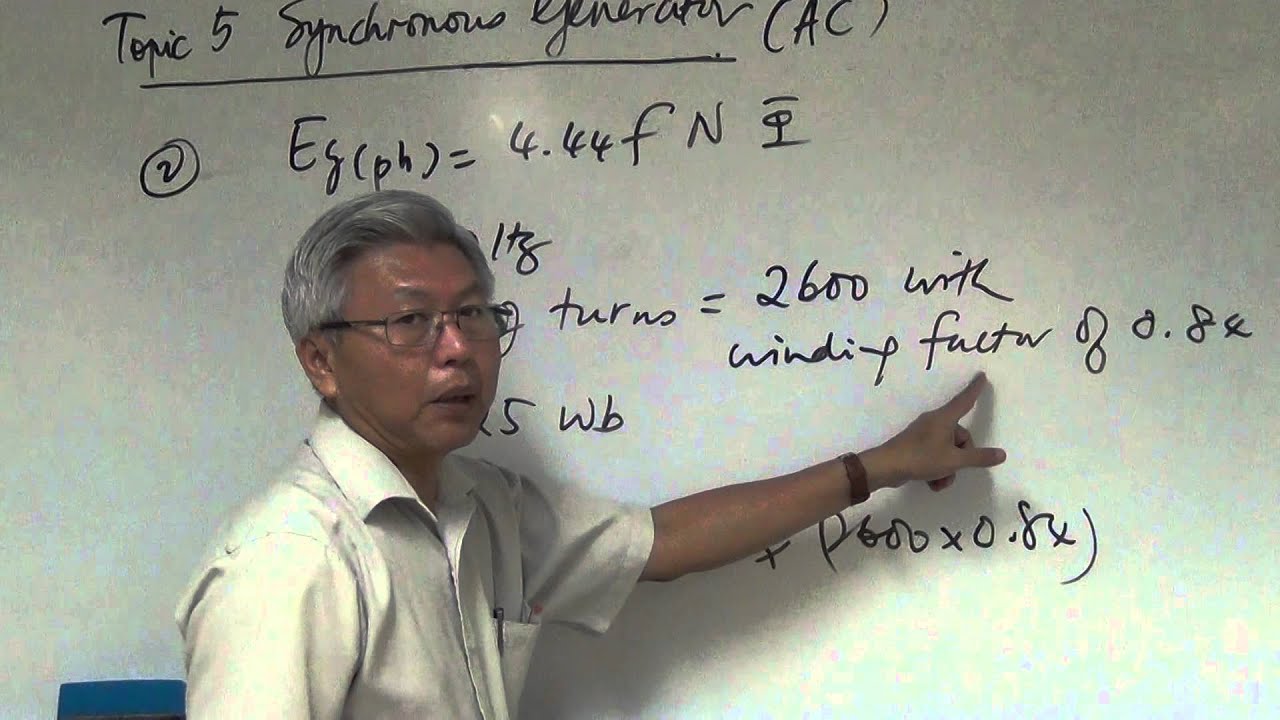 Topic 5 Synchronous Generator (AC)
② Eg(ph) = 4.44 f N Φ
Hz
turns = 2600 with
winding factor of 0.84
5 Wb
× (2600 × 0.84)